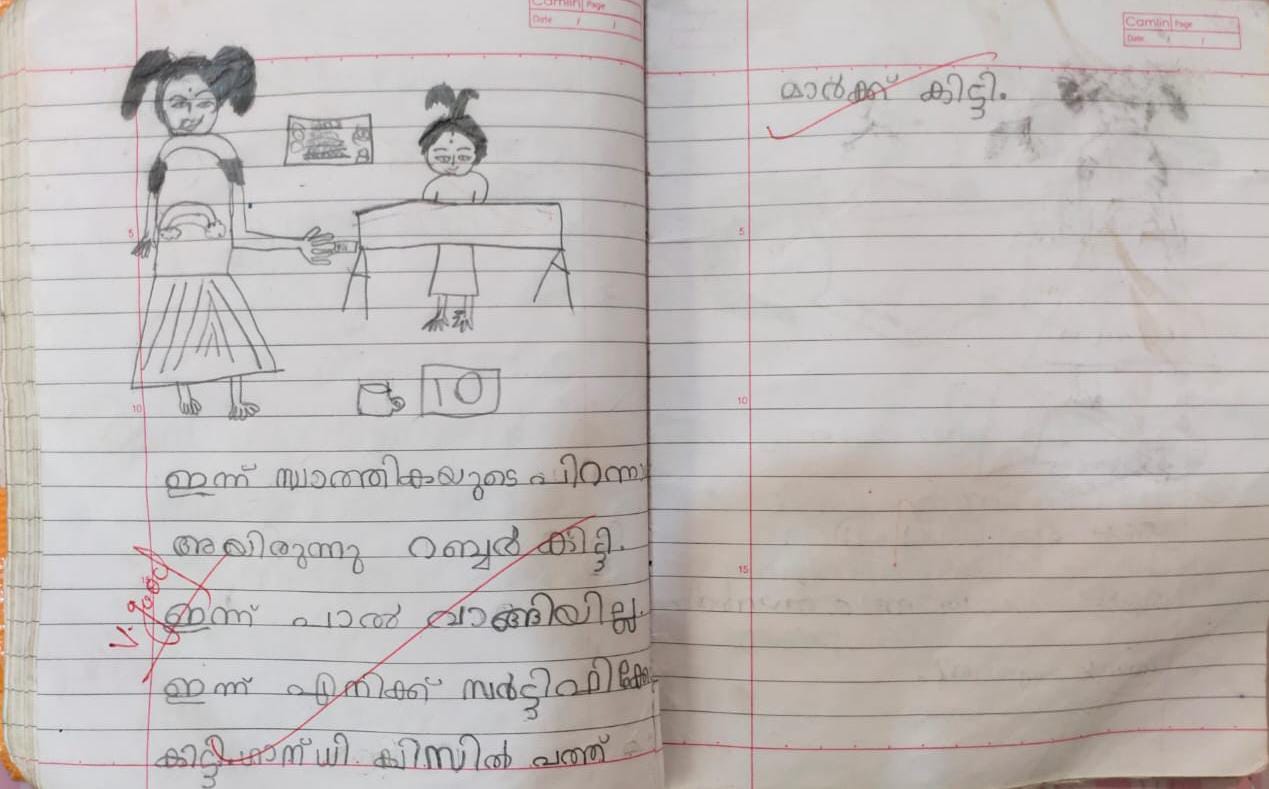 Camlin Page
Date / /
10
ഇന്ന് സ്വാത്തികയുടെ പിറന്നാ
അയിരുന്നു റബ്ബർ കിട്ടി.
V. good
ഇന്ന് പാൽ വാങ്ങിയില്ല.
ഇന്ന് എനിക്ക് സർട്ടിഫിക്കേ
കിട്ടി ഗാന്ധി ക്വിസിൽ പത്ത്
Camlin Page
Date / /
മാർക്ക് കിട്ടി.
5
10
5
10
15